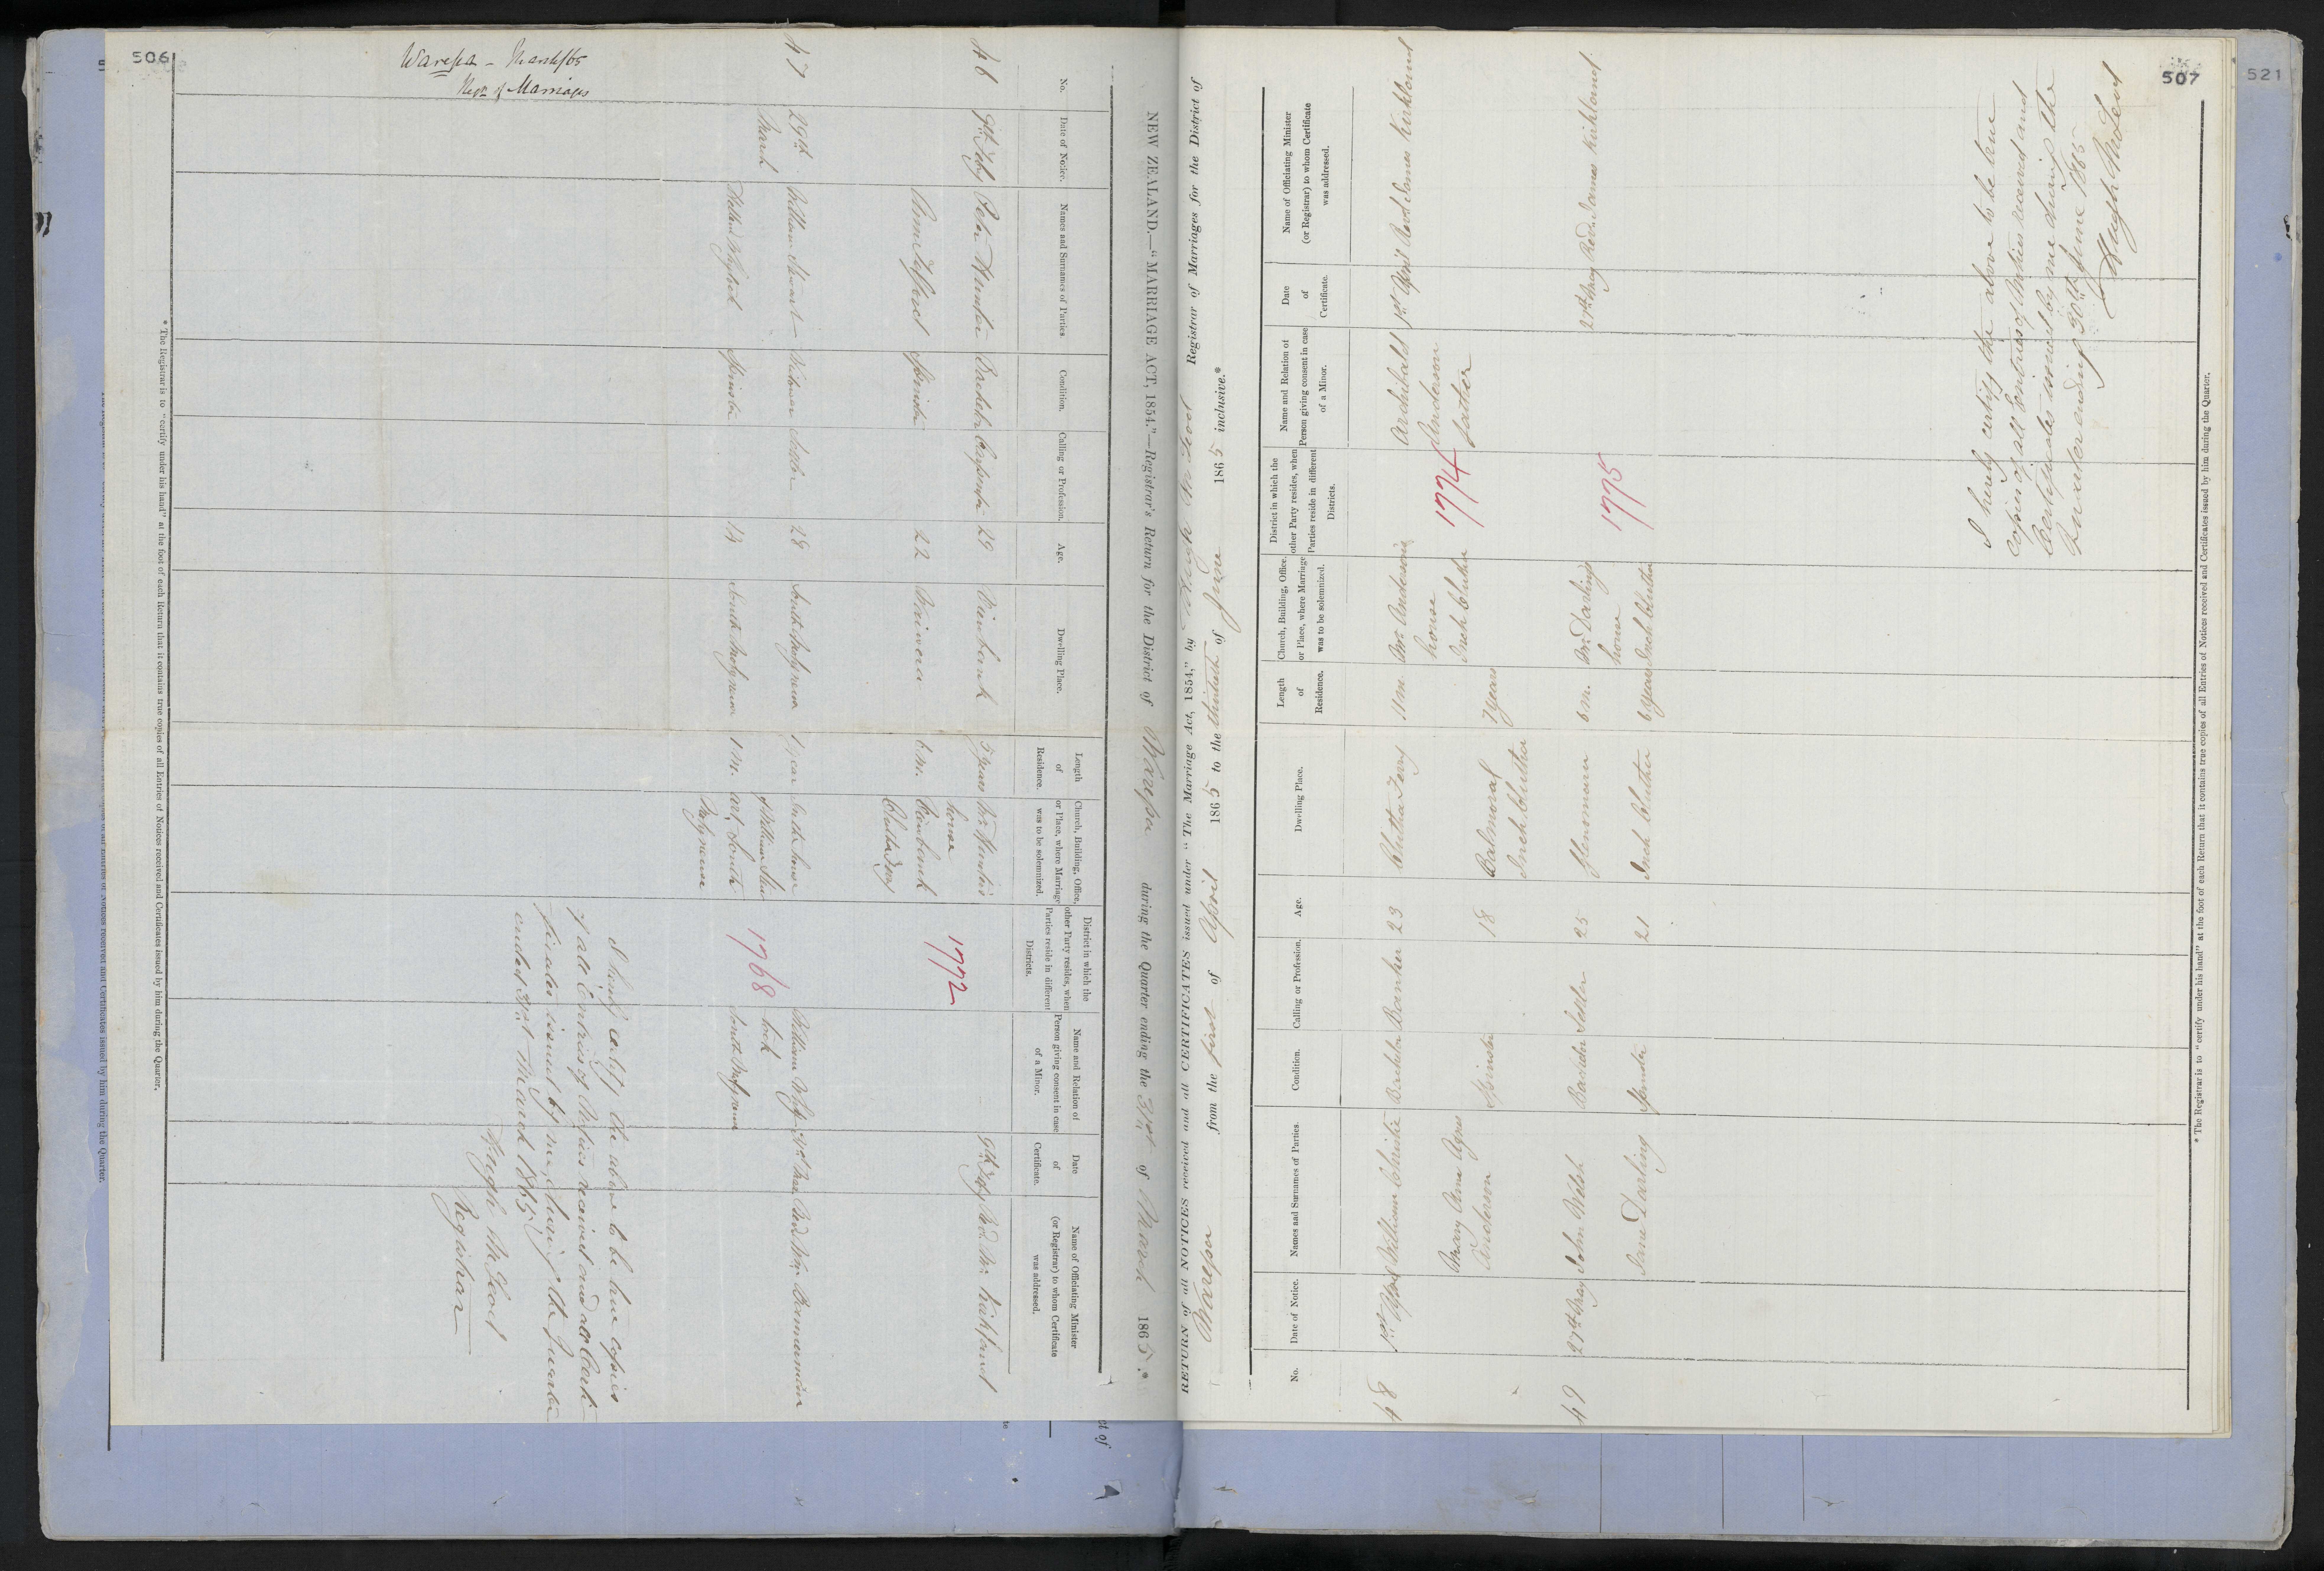 506
Warepa - March/65
Regr. of Marriages
NEW ZEALAND.—"MARRIAGE ACT, 1854."—Registrar's Return for the District of Warepa during the Quarter ending the 31st of March 1865.*
No.
Date of Notice.
Names and Surnames of Parties
Condition.
Calling or Profession.
Age.
Dwelling Place.
Length
of
Residence.
Church, Building, Office,
or Place, where Marriage
was to be solemnized.
District in which the
other Party resides, when
Parties reside in different
Districts.
Name and Relation of
Person giving consent in case
of a Minor.
Date
of
Certificate.
Name of Officiating Minister
(or Registrar) to whom Certificate
was addressed.
46 9th Feby Peter Hunter Bachelor Carpenter 29 5 years Mr Hunter's 9th Feby Revd. Mr. Kirkland
house
Anne Spinster 22 6 m. 1772
Clutha Ferry
47 29th William Stewart Widower Settler 28 South Molyneux 1 year In the house William
March of William Stew-
Spinster South Molyneux 1 m. art, South 1768 South Molyneux
Molyneux
I hereby certify the above to be true copies
of all Entries of Notices received and all Certi-
ficates issued by me, during the Quarter
ended 31st March 1865
Hugh McLeod
Registrar
* The Registrar is to "certify under his hand" at the foot of each Return that it contains true copies of all Entries of Notices received and Certificates issued by him during the Quarter.
507
521
RETURN of all NOTICES received and all CERTIFICATES issued under "The Marriage Act, 1854," by Hugh McLeod Registrar of Marriages for the District of
Warepa from the first of April 1865 to the thirtieth of June 1865 inclusive.*
No.
Date of Notice.
Names and Surnames of Parties.
Condition.
Calling or Profession.
Age.
Dwelling Place.
Length
of
Residence.
Church, Building, Office,
or Place, where Marriage
was to be solemnized.
District in which the
other Party resides, when
Parties reside in different
Districts.
Name and Relation of
Person giving consent in case
of a Minor.
Date
of
Certificate.
Name of Officiating Minister
(or Registrar) to whom Certificate
was addressed.
48 1st April William Christie Bachelor Banker 23 Clutha Ferry 11m Mr Andersons Archibald 1st April Revd James Kirkland
house 1774 Anderson
Mary Anne Agnes Inch Clutha father
Anderson Spinster 18 Balmoral 7 years
Inch Clutha
49 27th May John Welsh Bachelor Settler 25 Glenomoru 6 m. Mr. Darling 27th May Revd. James Kirkland
house 1775
Jane Darling Spinster 21 Inch Clutha 6 years Inch Clutha
I hereby certify the above to be true
copies of all Entries of Notices received and
Certificates issued by me during the
Quarter ending 30th June 1865
Hugh McLeod
* The Registrar is to "certify under his hand" at the foot of each Return that it contains true copies of all Entries of Notices received and Certificates issued by him during the Quarter.